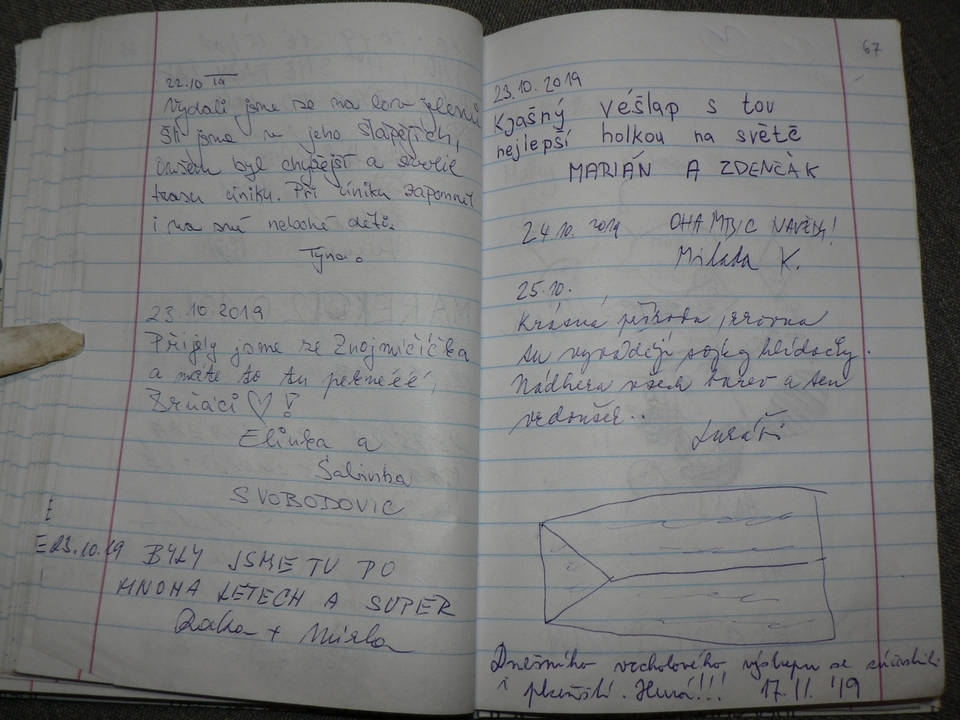 22.10 19
Vydali jsme se na lov jelena
Šli jsme v jeho šlápějích,
ovšem byl chytřejší a zvolil
trasu úniku. Při úniku zapomněl
i na své nebohé děti.
Týna.
23.10.2019
Přijely jsme ze Znojmíčíčka
a máte to tu peknééé,
Zrůáci ♡!
Elinka a
Sabinka
SVOBODOVIC
23.10.19 BYLY JSME TU PO
MNOHA LETECH A SUPER
+
67
23.10.2019
Kjašný véšlap s tou
nejlepší holkou na světě
MARIÁN A ZDENČÁK
24.10.2019
Milada K.
25.10.
Krásná příroda, zrovna
tu vyvádějí sojky hlídačky.
Nádhera všech barev a ten
vzdoušek..
Lukáš
Dnešního vrcholového výstupu se zúčastnili
i plzeňští. Hurá!!! 17.11.'19